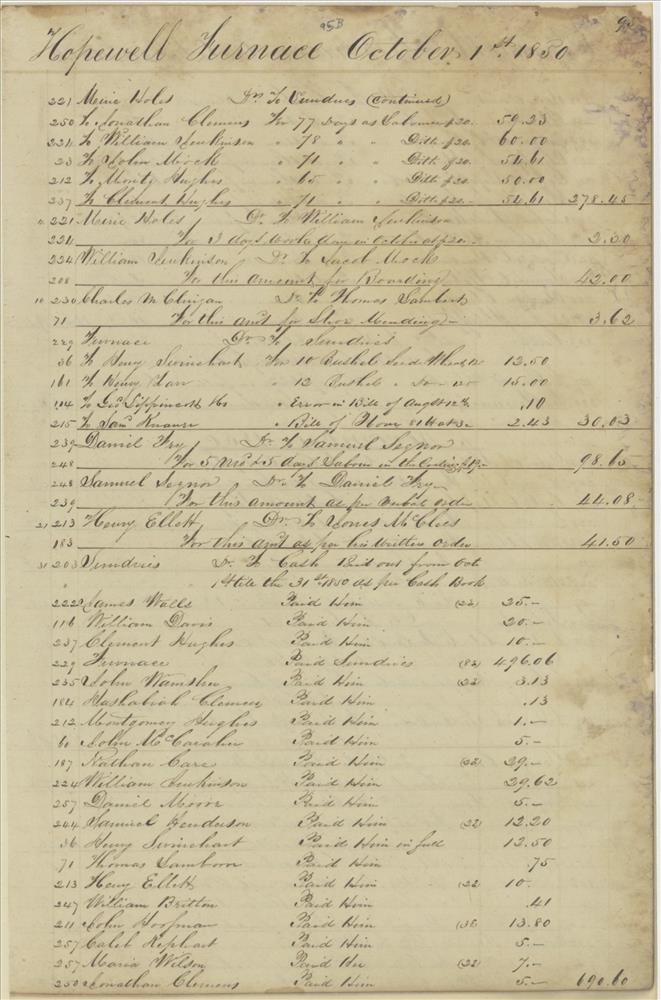 95B
95
Hopewell Furnace October 1st 1850
221 Mine Holes Dr. To Sundries (Continued)
250 To Jonathan Clemens For 77 Days as Labourer $20 59.23
224 To William Jenkinson " 78 " " Ditto $20 60.00
23 To John Mock " 71 " " Ditto $20 54.61
212 To Hughes " 65 " " Ditto $20 50.00
237 To Clement Hughes " 71 " " Ditto $20 54.61 278.45
221 Mine Holes Dr. To William Jenkinson
224 For 3 days in October at $20 2.30
224 William Jenkinson Dr. To Jacob Mock
208 For this amount for Boarding 42.00
10 230 Charles Dr. To Thomas Lambert
71 For this amt for Shoe Mending 3.62
229 Furnace Dr. To Sundries
36 To Henry Swinehart For 10 Bushels Seed Wheat 12.50
161 To Henry " 12 Bushels " 15.00
114 To Geo Lippincott & Co " Error in Bill of Augt 12th .10
215 To Saml Knauer " Bill of 2.43 30.03
239 Daniel Fry Dr. To Samuel Segner
248 For 5 Mos & 5 days Labour in the 98.65
248 Samuel Segner Dr. To Daniel Fry
239 For this amount as per Verbal order 44.08
21 213 Henry Ellett Dr. To Jones McClees
183 For this amt as per his Written Order 41.50
31 203 Sundries Dr. To Cash Paid out from Oct
1st till the 31st 1850 as per Cash Book
222 James Walls Paid Him (22) 25.–
116 William Davis Paid Him 20.–
237 Clement Hughes Paid Him 10.–
229 Furnace Paid Sundries (83) 496.06
235 John Wamsher Paid Him (22) 3.13
184 Hashabiah Clemens Paid Him .13
212 Montgomery Hughes Paid Him 1.–
60 John Paid Him 5.–
187 Nathan Care Paid Him (22) 29.–
224 William Jenkinson Paid Him 29.62
257 Daniel Moore Paid Him 5.–
244 Samuel Henderson Paid Him (22) 12.20
36 Henry Swinehart Paid Him in full 12.50
71 Thomas Lamborn Paid Him .75
213 Henry Ellett Paid Him (22) 10.
247 William Britton Paid Him .41
211 John Hoofman Paid Him (38) 13.80
257 Caleb Kephart Paid Him 5.–
257 Maria Wilson Paid Her (22) 7.–
250 Jonathan Clemens Paid Him 5.– 690.60